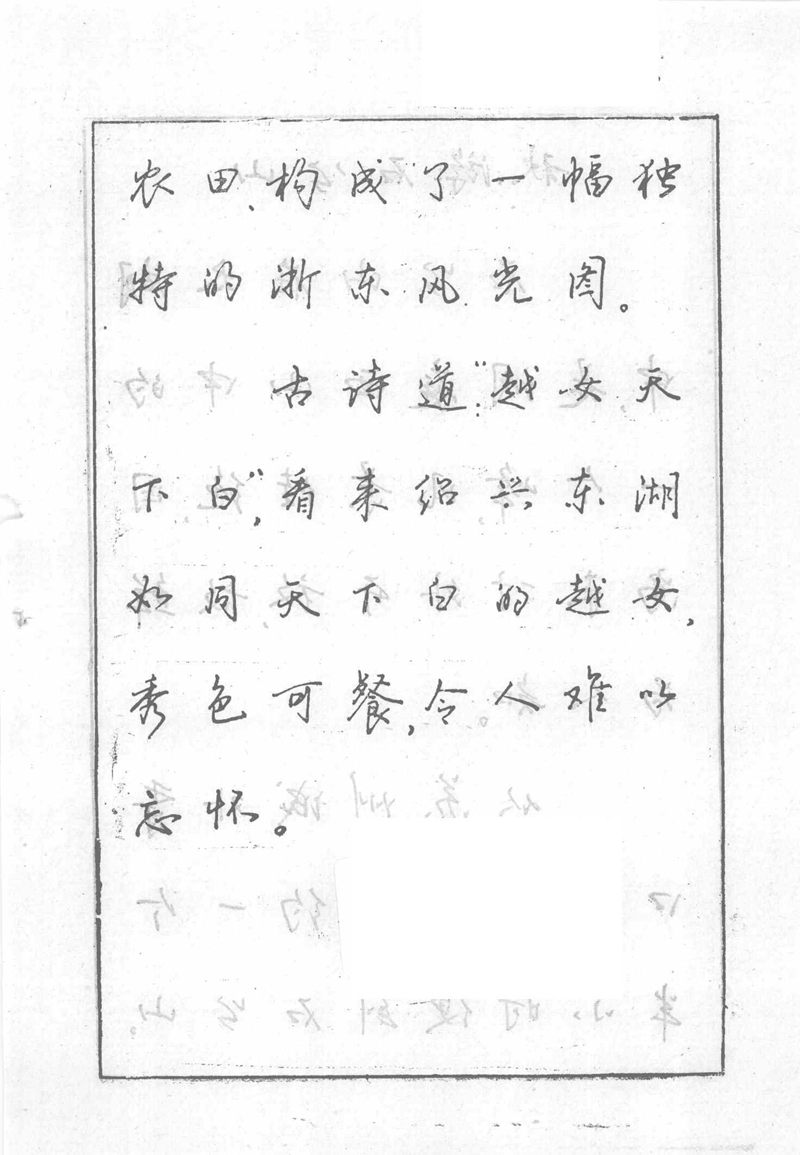 农田、构成了一幅独
特的浙东风光图。
古诗道：“越女天
下白”，看来绍兴东湖
如同天下白的越女，
秀色可餐，令人难以
忘怀。